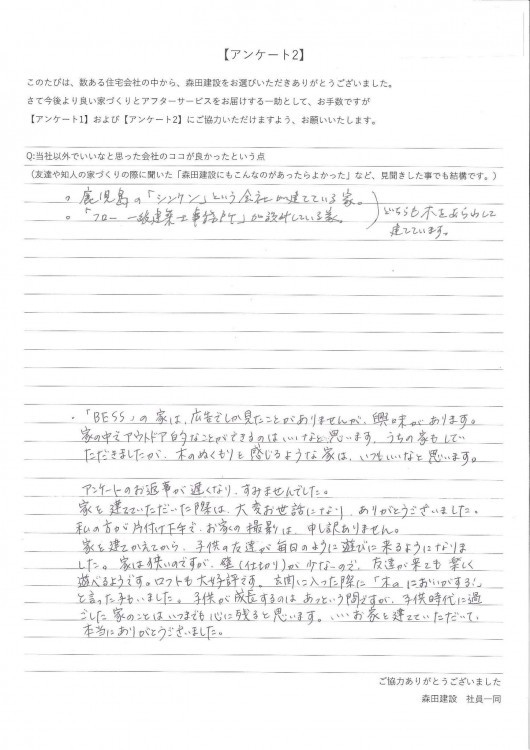 【アンケート2】
このたびは、数ある住宅会社の中から、森田建設をお選びいただきありがとうございました。
さて今後より良い家づくりとアフターサービスをお届けする一助として、お手数ですが
【アンケート1】および【アンケート2】にご協力いただけますよう、お願いいたします。
Q:当社以外でいいなと思った会社のココが良かったという点
（友達や知人の家づくりの際に聞いた「森田建設にもこんなのがあったらよかった」など、見聞きした事でも結構です。）
。鹿児島の「シンケン」という会社が建てている家。
。「フロー 一級建築士事務所」が設計している家。
どちらも木をあらわして
建てています。
・「BESS」の家は、広告でしか見たことがありませんが、興味があります。
家の中でアウトドア的なことができるのはいいなと思います。うちの家もしてい
ただきましたが、木のぬくもりを感じるような家は、いつもいいなと思います。
アンケートのお返事が遅くなり、すみませんでした。
家を建てていただいた際は、大変お世話になり、ありがとうございました。
私の方が片付け下手で、お家の撮影は、申し訳ありません。
家を建てかえてから、子供の友達が毎日のように遊びに来るようになりま
した。家は狭いのですが、壁（仕切り）が少ないので、友達が来ても楽しく
遊べるようです。ロフトも大好評です。玄関に入った際に「木のにおいがする！」
と言った子もいました。子供が成長するのはあっという間ですが、子供時代に過
ごした家のことはいつまでも心に残ると思います。いいお家を建てていただいて、
本当にありがとうございました。
ご協力ありがとうございました
森田建設　社員一同